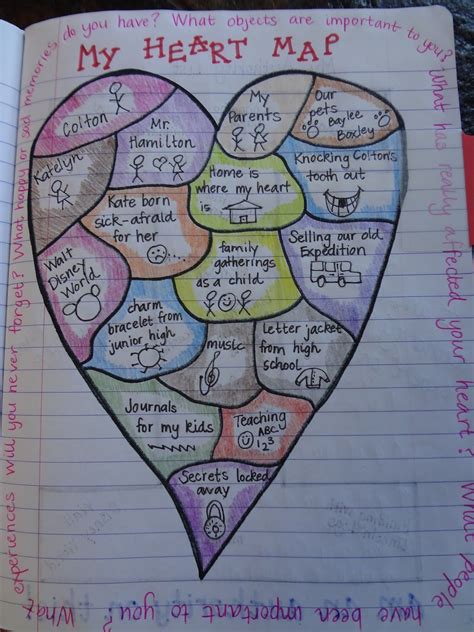 do you have? What objects are important to you?
What has really affected your heart? What people
have been important to you? What
experiences will you never forget? What happy or sad memories
MY HEART MAP
Colton
Mr.
Hamilton
My
Parents
Our
pets
Baylee
Boxley
Katelyn
Kate born
sick-afraid
for her
Home is
where my heart
is
Knocking Colton's
tooth out
Walt
Disney
World
family
gatherings
as a child
Selling our old
Expedition
charm
bracelet from
junior high
music
Letter jacket
from high
school
Journals
for my kids
Teaching
ABC
123
Secrets locked
away